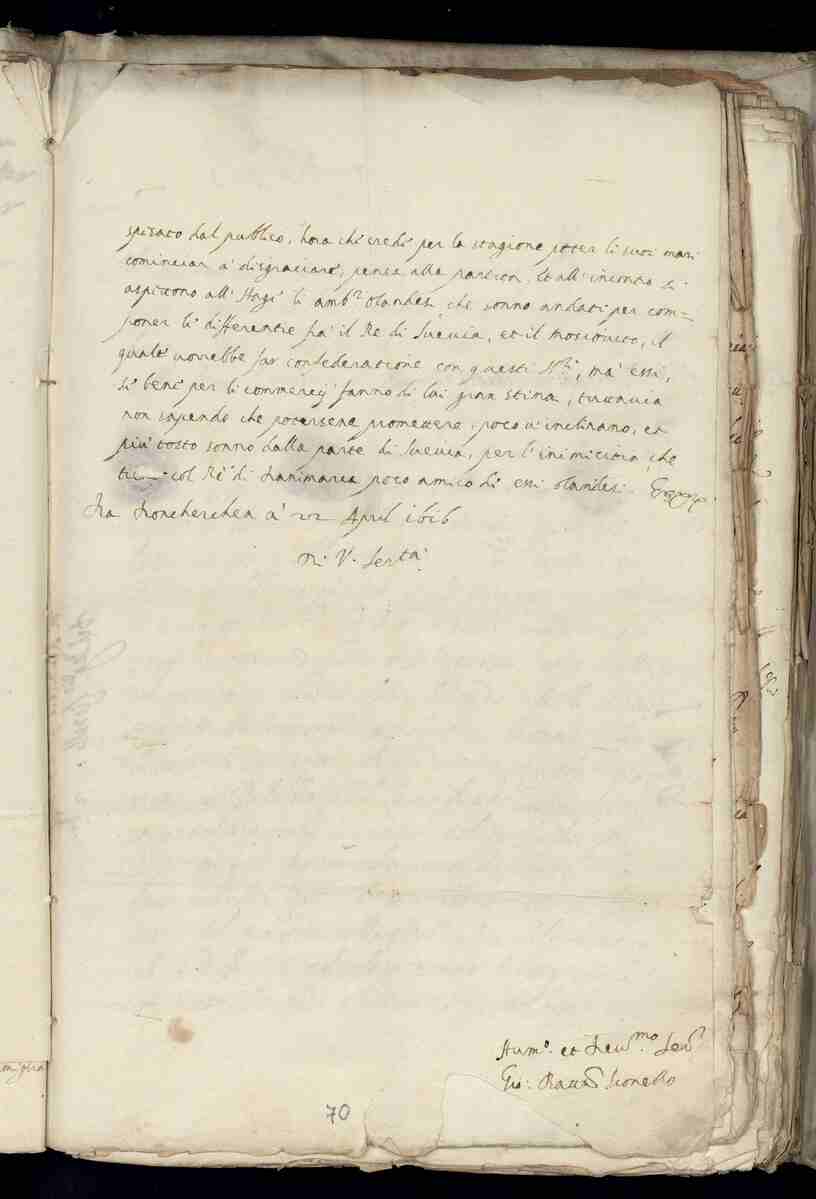 spesato dal publico, hora che crede per la stagione poter li suoi mari
cominciar a disgiacciare, pensa alla partita. Et all'incontro si
aspettono all'Haga li amb.ri olandesi che sonno andati per com=
poner le differentie fra il Re di Suecia, et il Moscovito, il
quale vorrebbe far confederatione con questi SS.ri, ma essi,
se bene per li commercij fanno di lui gran stima, tuttavia
non sapendo che potersene promettere, poco v'inclinano, et
più tosto sonno dalla parte di Suecia, per l'inimicitia, che
tiene col Re di Danimarca poco amico di essi olandesi.
Da
à 22 April 1616
Di V. Ser.tà
Hum.o et Devot.mo Ser.r
Gio: Batt.a Lionello
70